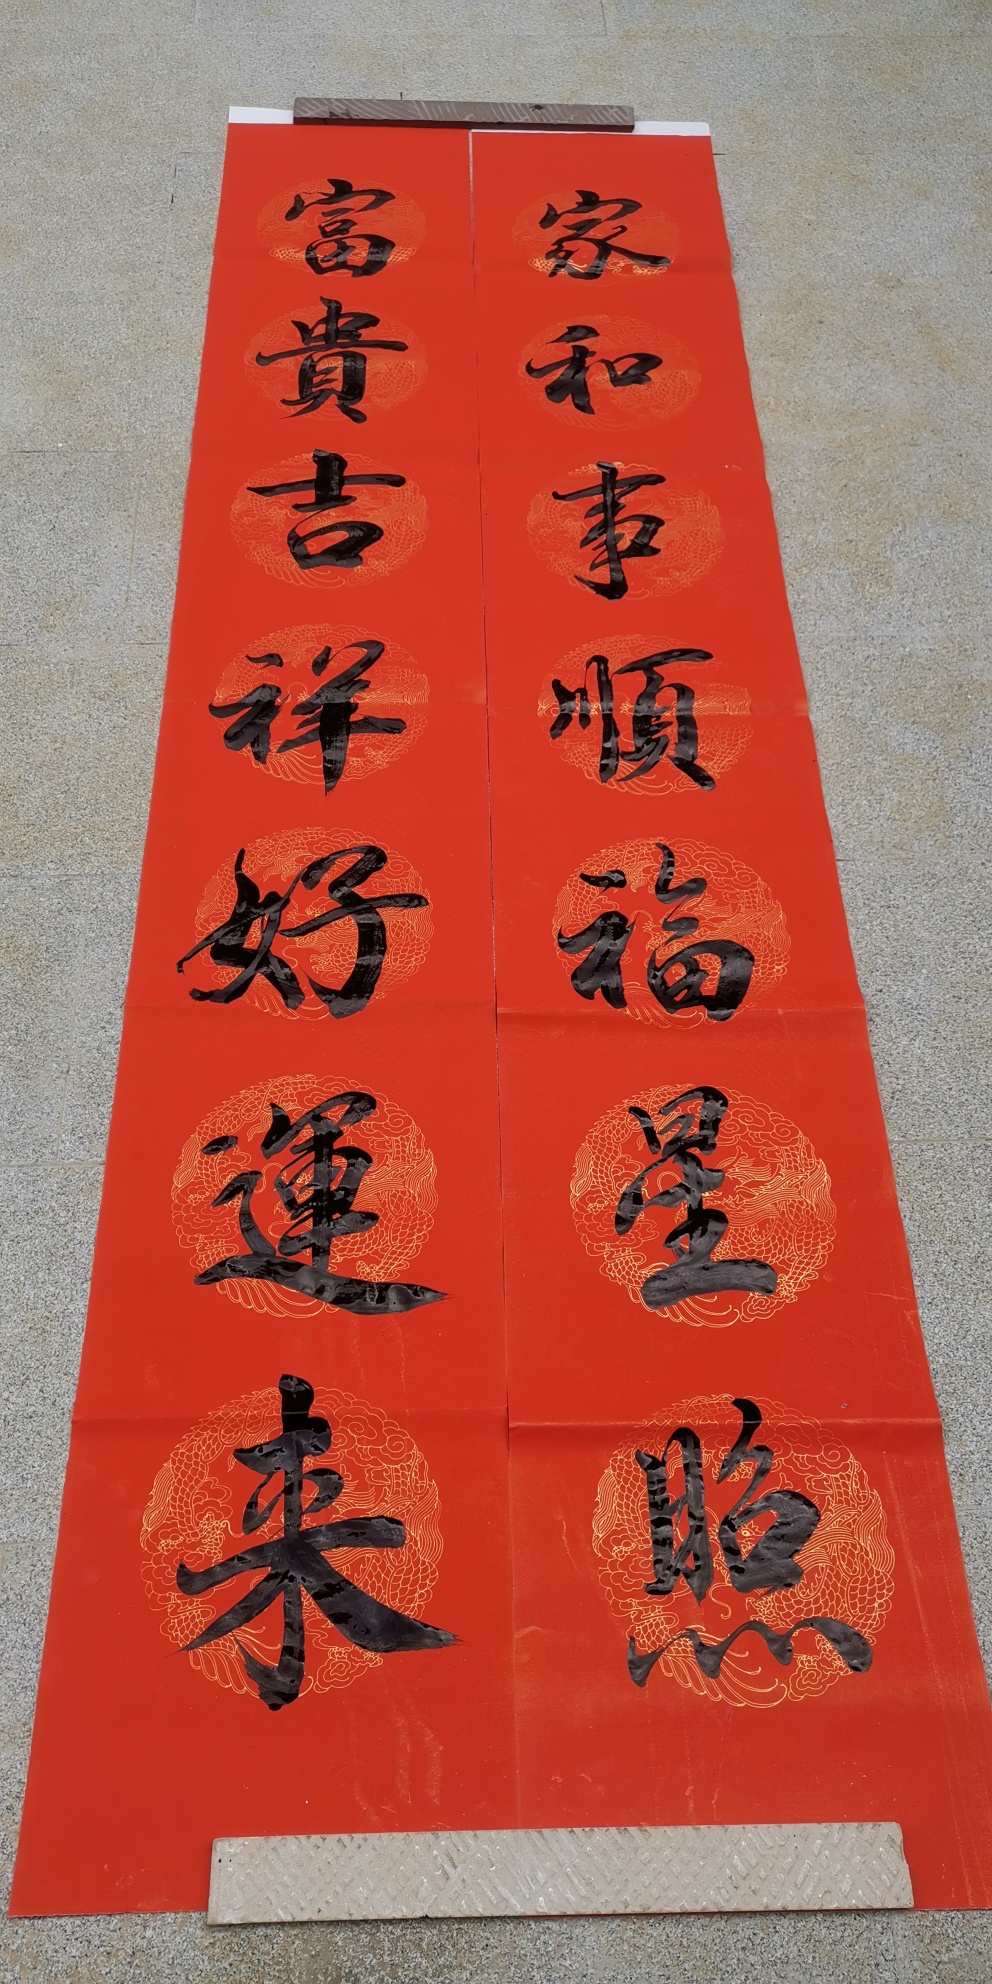 家和事順福星照
富貴吉祥好運来